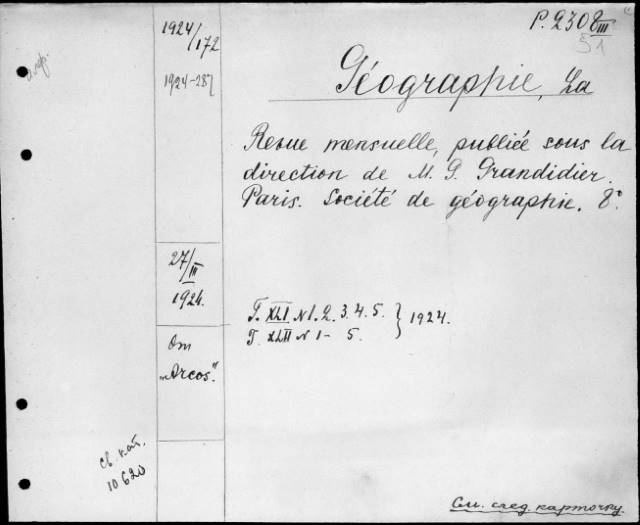 P. 2308 III
51
1924/172
1924-287
Géographie, La
Revue mensuelle, publiée sous la
direction de M. G. Grandidier.
Paris. Société de géographie. 8°.
27/III
1924.
От
„Arcos."
Т. XLI N 1. 2. 3. 4. 5. } 1924.
Т. XLII N 1 - 5.
св. кат.
10620
См. след. карточку.